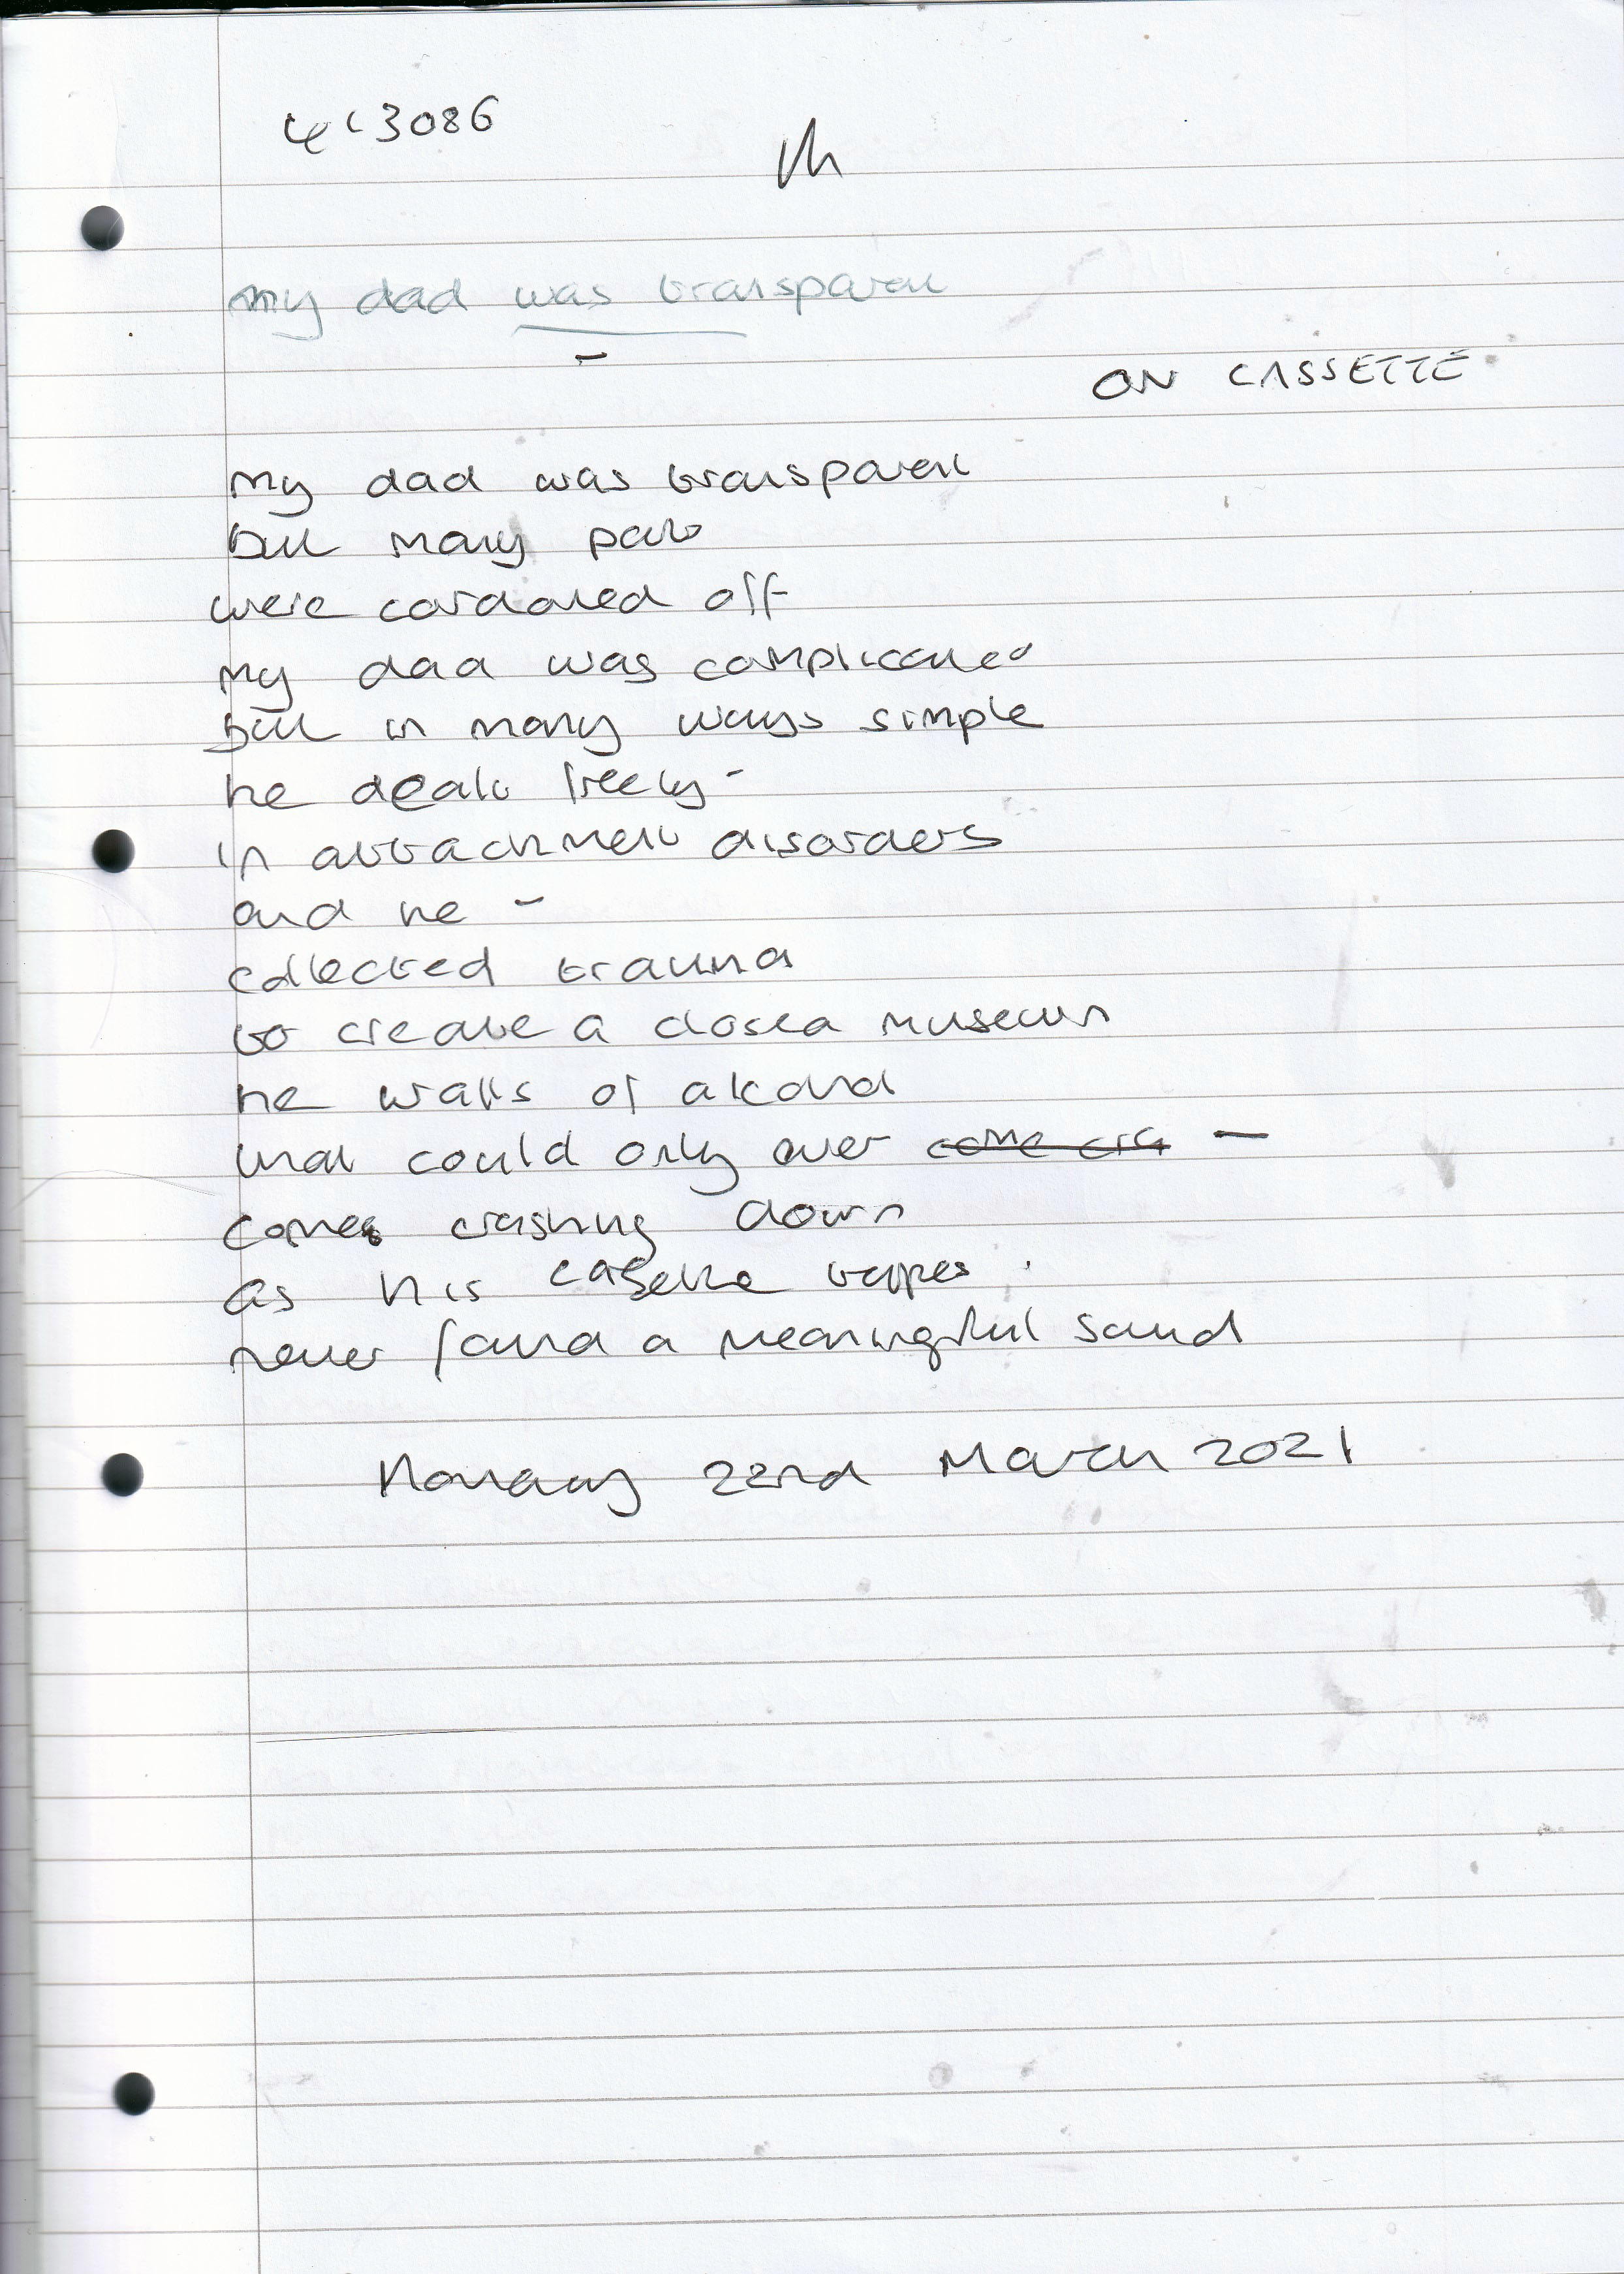 3086
my dad was transparent
ON CASSETTE
my dad was transparent
but many parts
were cordoned off
my dad was complicated
but in many ways simple
he dealt freely -
in attachment disorders
and he -
collected trauma
to create a closed museum
the walls of alcohol
that could only ever come cra -
comes crashing down
as his cassette tapes
never found a meaningful sound
Monday 22nd March 2021